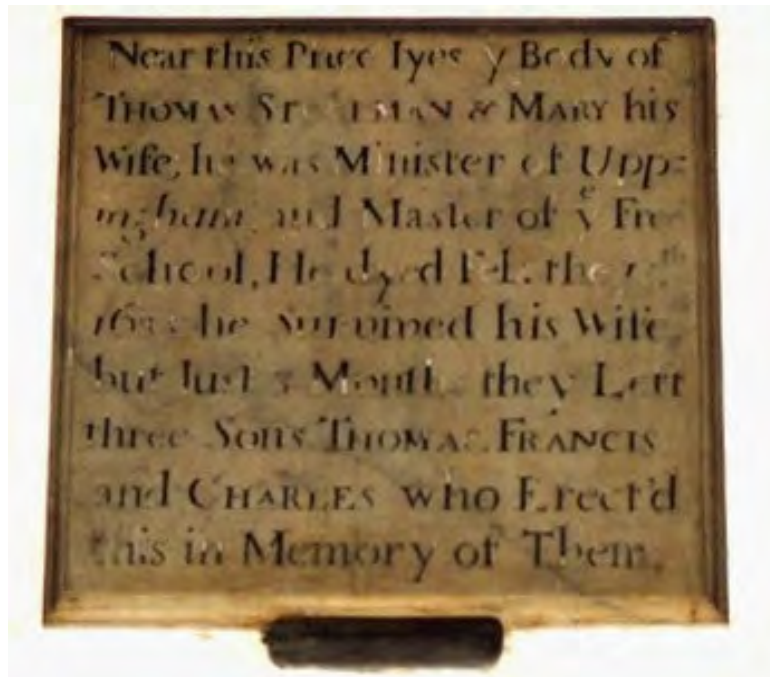 Near this Place lyes y Body of
THOMAS & MARY his
Wife, he was Minister of Upp=
ingham and Master of yᵉ Free
School, He dyed Feb. the
he Survived his Wife
but Just Months they Left
three Sons THOMAS FRANCIS
and CHARLES who Erect'd
this in Memory of Them.